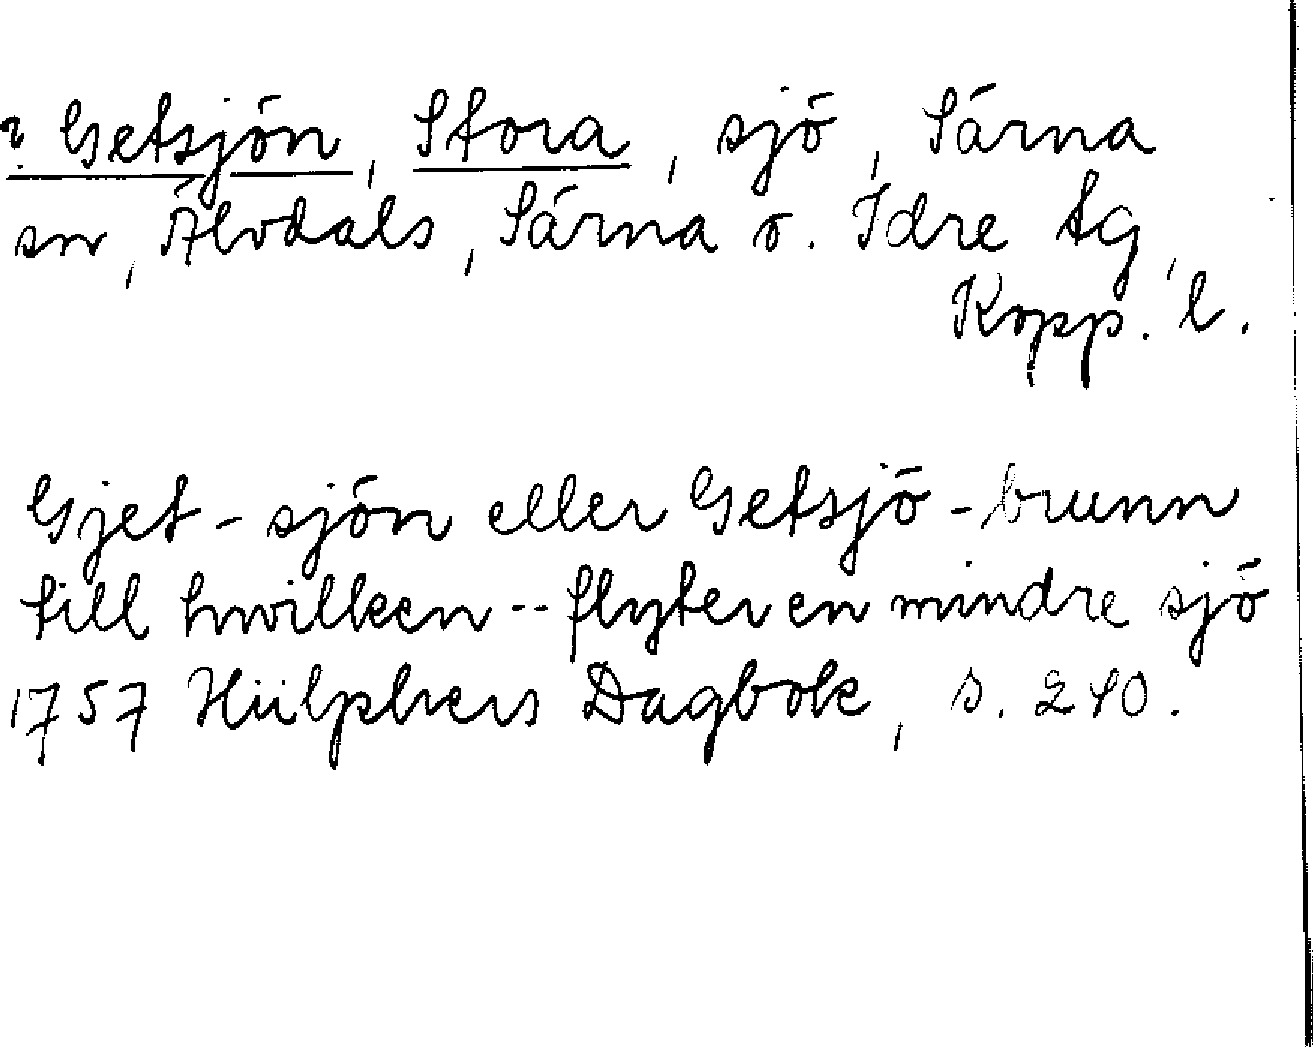 ? Getsjön, Stora, sjö, Särna
sn, Älvdals, Särna o. Idre tg,
Kopp. l.
Gjet-sjön eller Getsjö-brunn
till hwilken -- flyter en mindre sjö
1757 Hülphers Dagbok, s. 240.